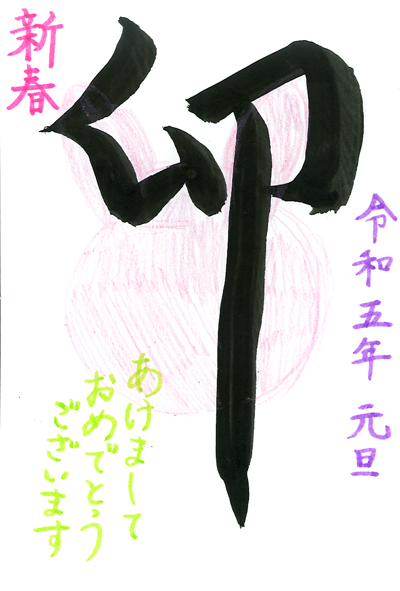 新春
卯
令和五年 元旦
あけまして
おめでとう
ございます